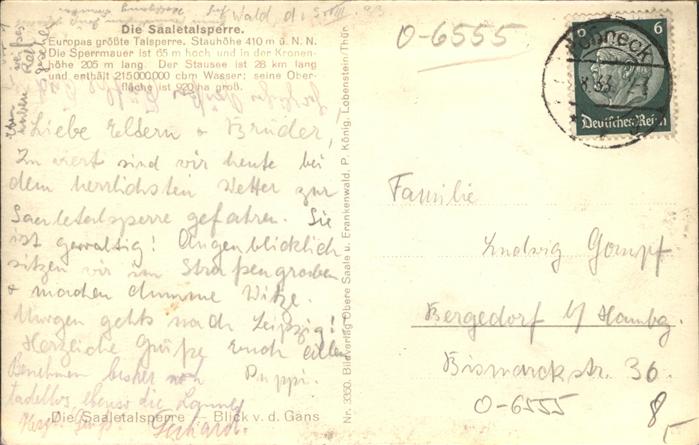 Wald, d.
Die Saaletalsperre.
Europas größte Talsperre. Stauhöhe 410 m ü. N. N.
Die Sperrmauer ist 65 m hoch und in der Kronen-
höhe 205 m lang. Der Stausee ist 28 km lang
und enthält 215 000 000 cbm Wasser; seine Ober-
fläche ist 920 ha groß.
Liebe Eltern + Brüder,
Zu viert sind wir heute bei
dem herrlichsten Wetter zur
Saaletalsperre gefahren. Sie
ist gewaltig! Augenblicklich
sitzen wir im Straßengraben
+ machen dumme Witze.
Morgen gehts nach Leipzig!
Herzliche Grüße Euch allen
Puppi.
Benehmen bisher
tadellos, ebenso die Launen
Gerhard.
Die Saaletalsperre — Blick v. d. Gans
Nr. 3350. Bildverlag Obere Saale u. Frankenwald. P. König, Lobenstein-Thür.
O-6555
Pößneck
6
Deutsches Reich
Familie
Ludwig Gampf
Bergedorf b/ Hambg.
Bismarckstr. 36
O-6555
8,-